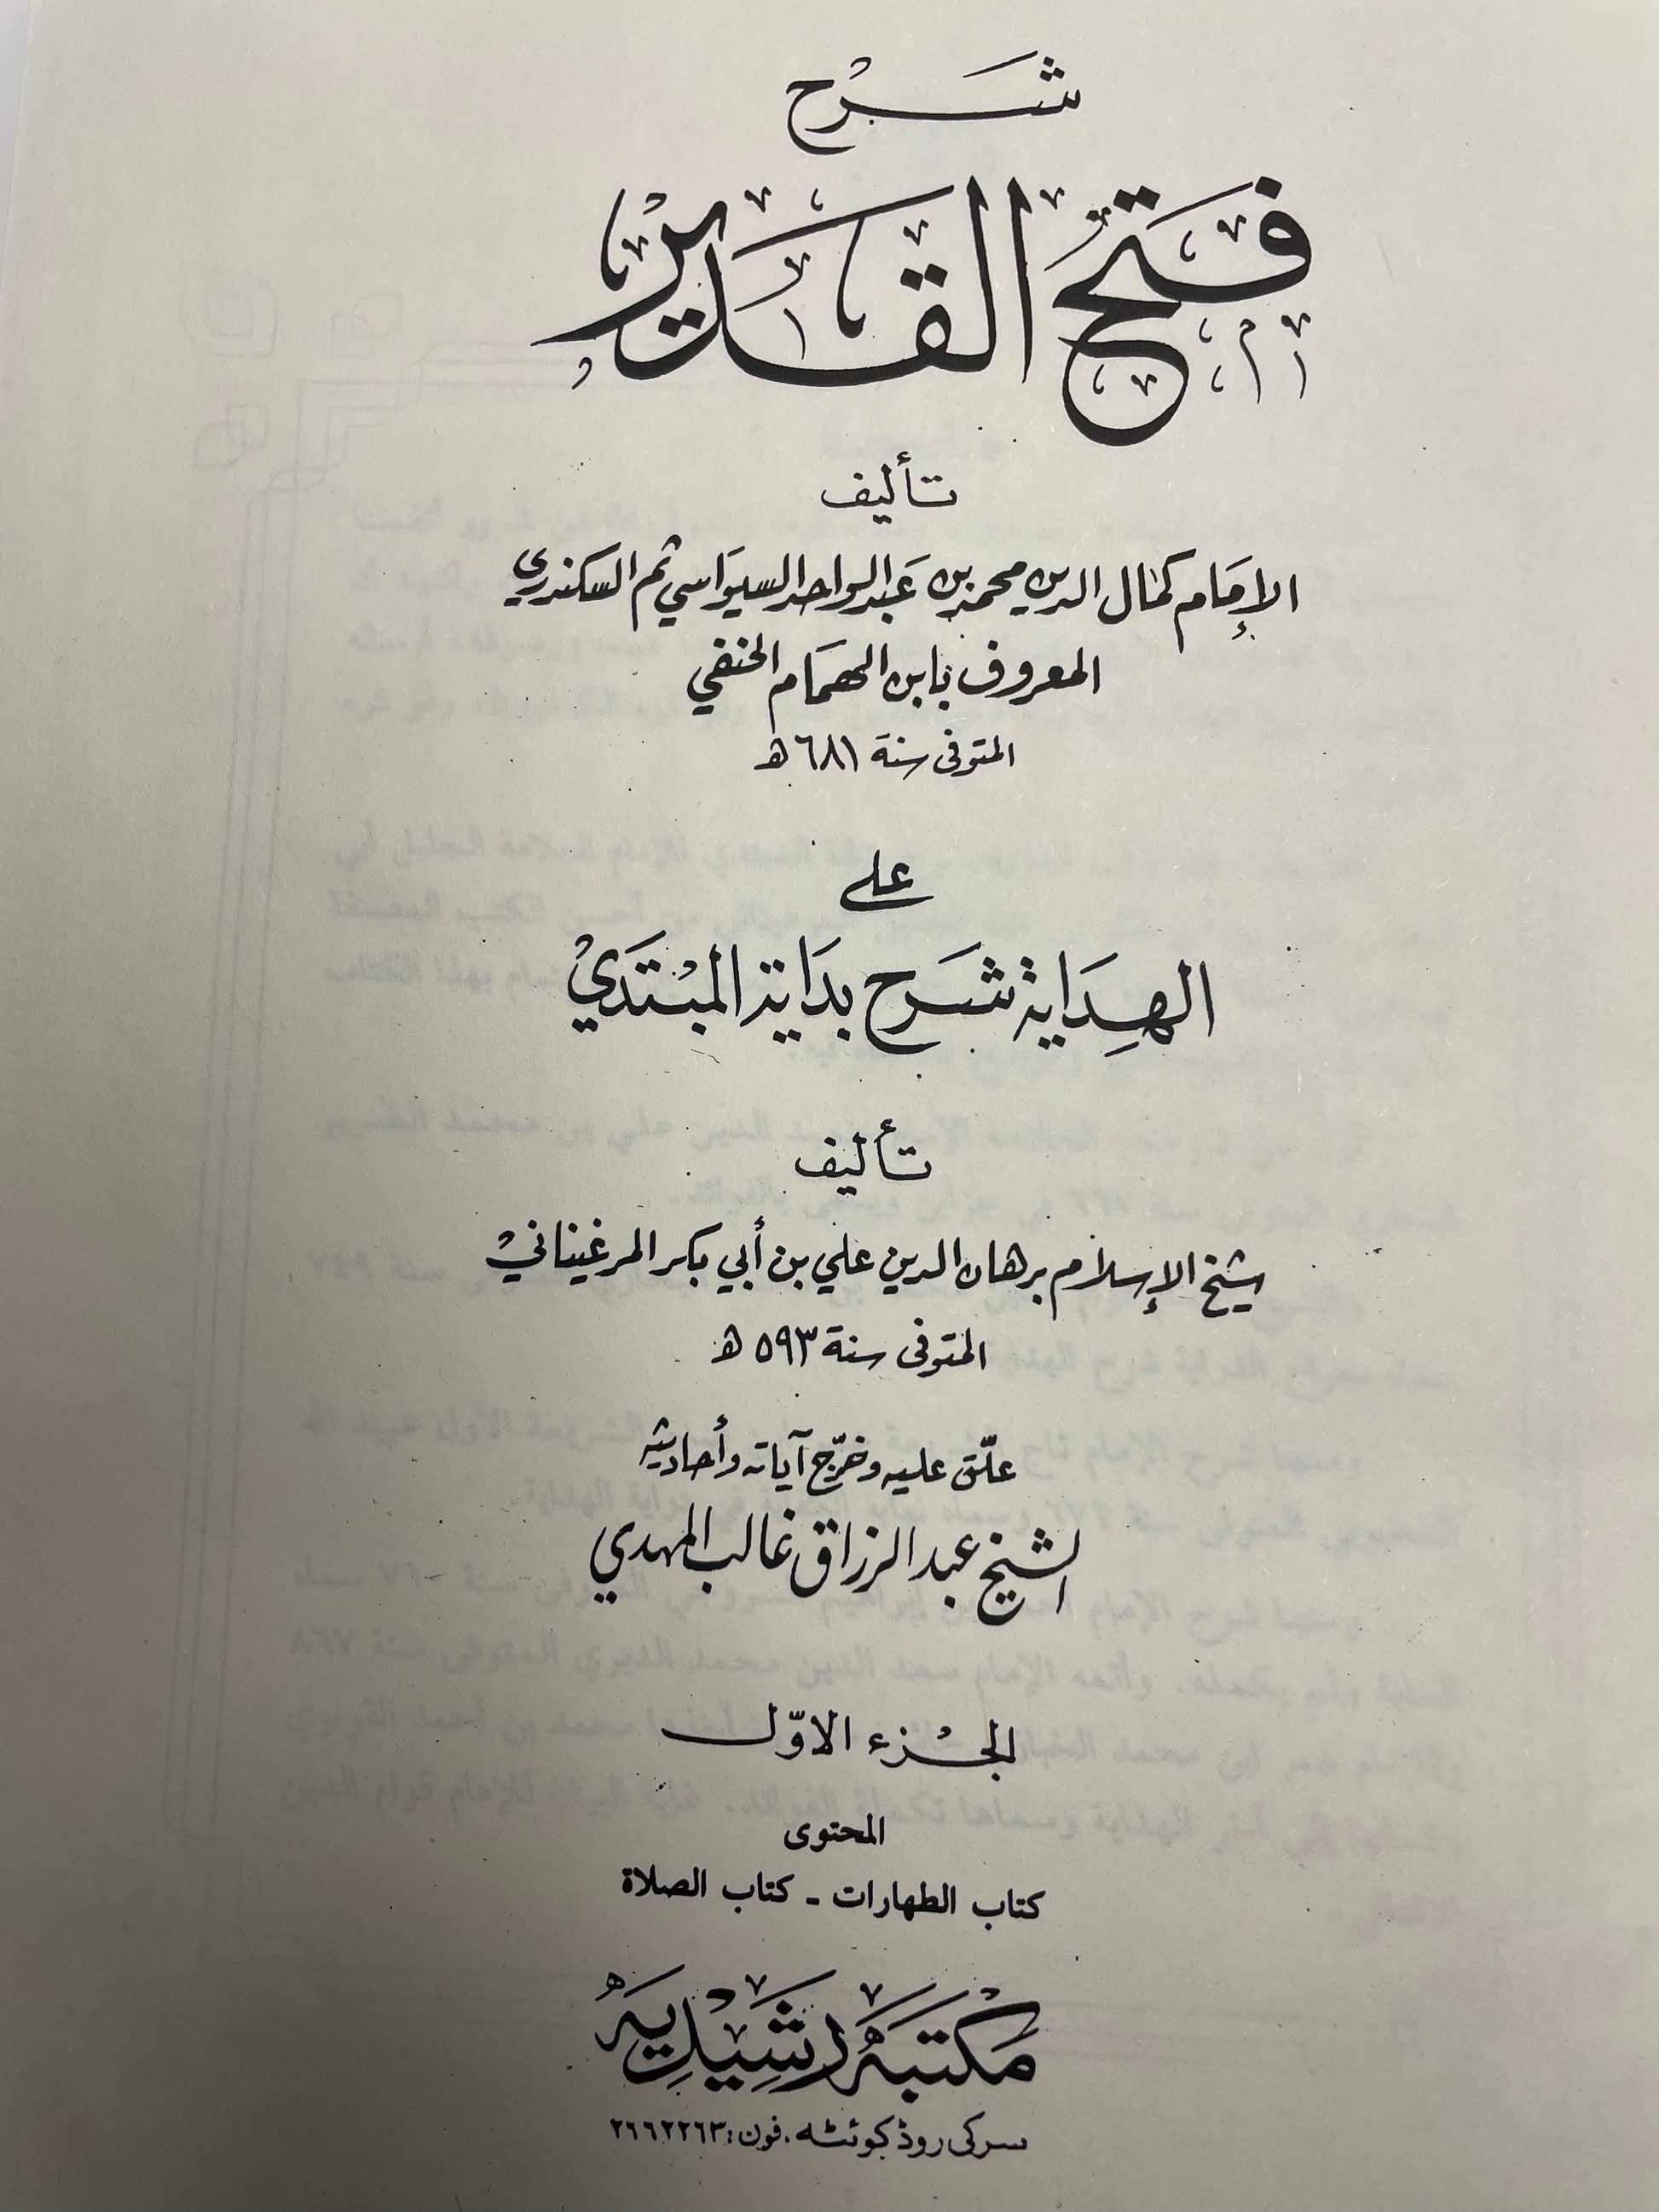 شرح
فتح القدير
تأليف
الإمام كمال الدين محمد بن عبد الواحد السيواسي ثم السكندري
المعروف بابن الهمام الحنفي
المتوفى سنة ٦٨١ هـ
على
الهداية شرح بداية المبتدي
تأليف
شيخ الإسلام برهان الدين علي بن أبي بكر المرغيناني
المتوفى سنة ٥٩٣ هـ
علّق عليه وخرّج آياته وأحاديثه
الشيخ عبد الرزاق غالب المهدي
الجزء الاوّل
المحتوى
كتاب الطهارات - كتاب الصلاة
مكتبه رشيديه
سرکی روڈ کوئٹه . فون : ٢٦٦٢٢٦٣